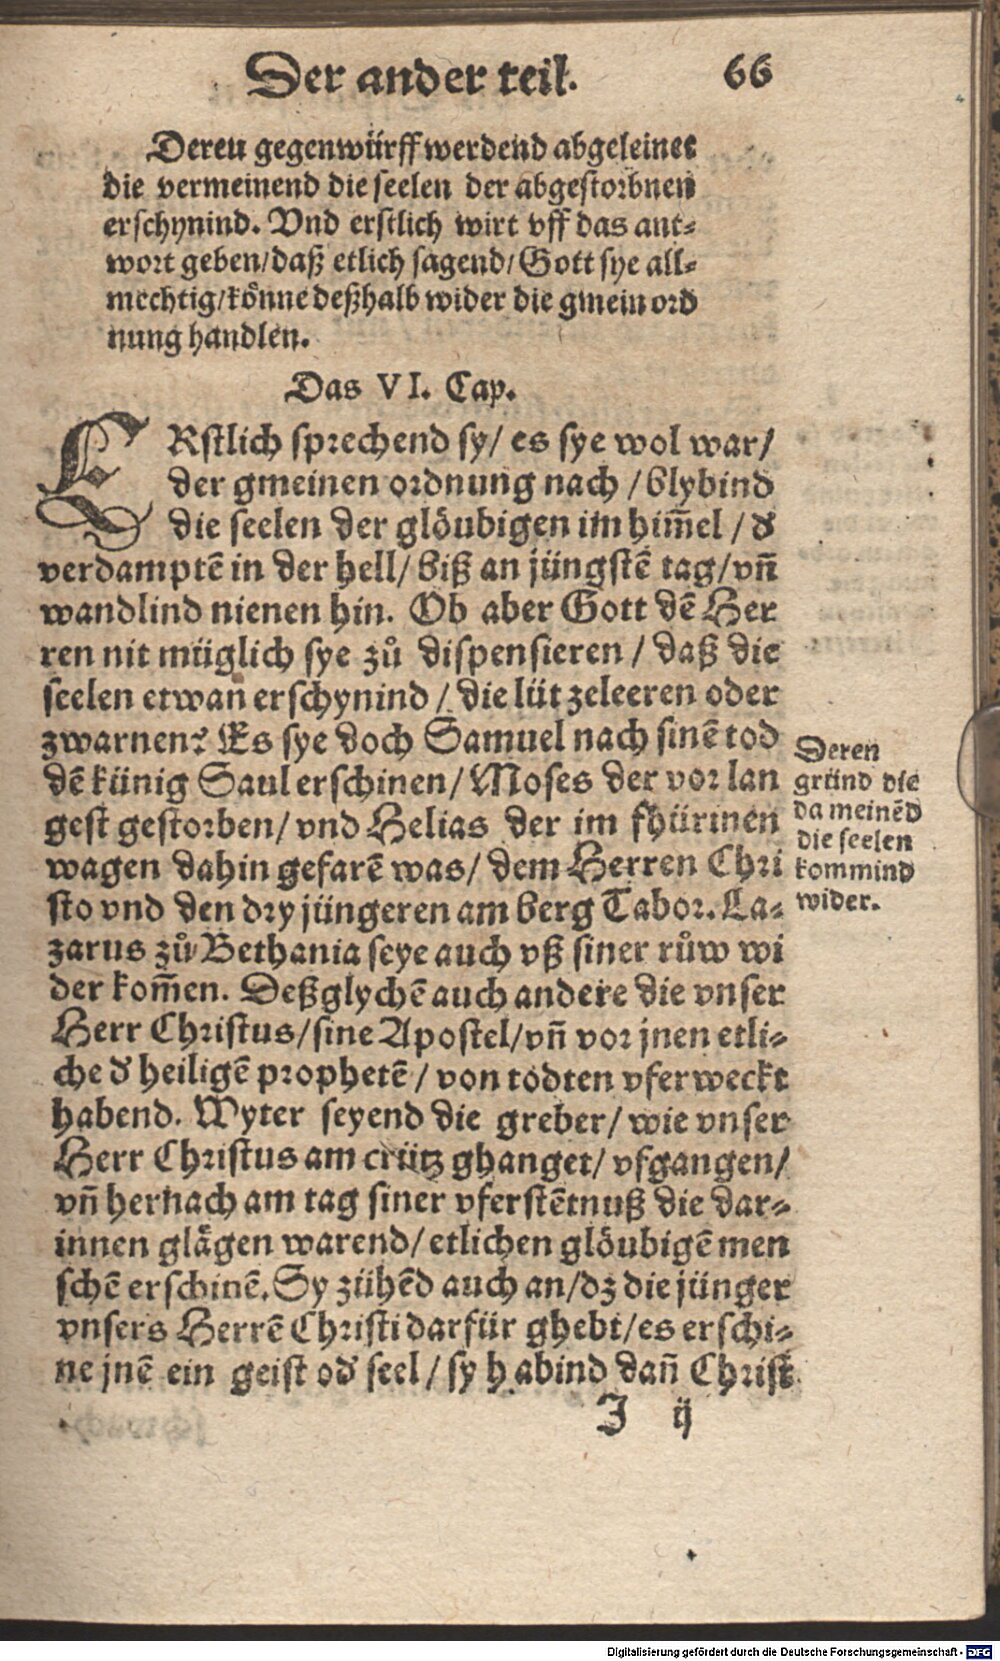 Der ander teil. 66
Deren gegenwürff werdend abgeleinet
die vermeinend die seelen der abgestorbnen
erschynind. Vnd erstlich wirt vff das ant⸗
wort geben/daß etlich sagend/Gott sye all⸗
mechtig/könne deßhalb wider die gmein ord
nung handlen.
Das VI. Cap.
ERstlich sprechend sy/ es sye wol war/
der gmeinen ordnung nach /blybind
die seelen der glöubigen im him̄el / d̕
verdamptē in der hell/ biß an jüngstē tag/vn̄
wandlind nienen hin. Ob aber Gott dē Her
ren nit müglich sye zů dispensieren / daß die
seelen etwan erschynind / die lüt zeleeren oder
zwarnen? Es sye doch Samuel nach sinē tod
dē künig Saul erschinen/ Moses der vor lan
gest gestorben/ vnd Helias der im fhürinen
wagen dahin gefarē was/ dem Herren Chri
sto vnd den dry jüngeren am berg Tabor. La⸗
zarus zů Bethania seye auch vß siner růw wi
der kom̄en. Deßglychē auch andere die vnser
Herr Christus/sine Apostel/vn̄ vor jnen etli⸗
che d̕ heiligē prophetē / von todten vferweckt
habend. Wyter seyend die greber/ wie vnser
Herr Christus am crütz ghanget/ vfgangen/
vn̄ hernach am tag siner vferstētnuß die dar⸗
innen glägen warend/ etlichen glöubigē men
schē erschinē. Sy zühēd auch an/dz die jünger
vnsers Herrē Christi darfür ghebt/es erschi⸗
ne jnē ein geist od̕ seel / sy habind dan̄ Christ
J ij
Deren
gründ die
da meinēd
die seelen
kommind
wider.
Digitalisierung gefördert durch die Deutsche Forschungsgemeinschaft - DFG